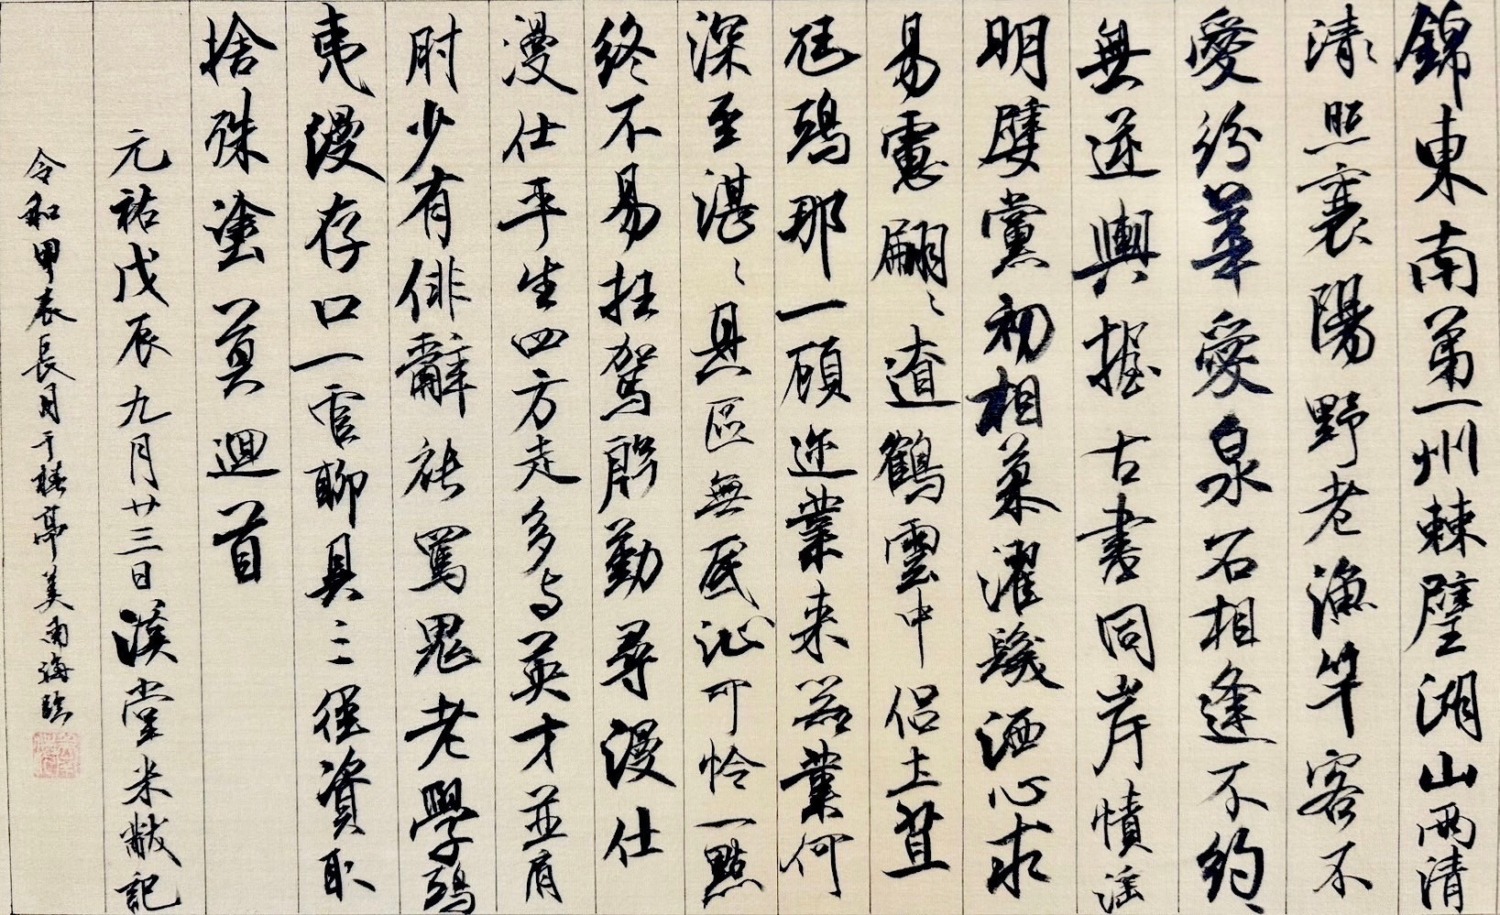 錦東南第一州棘璧湖山兩清
清照襄陽野老漁竿客不
愛紛華愛泉石相逢不約
無逆輿握古書同岸幘淫
明嬖黨初相慕濯髮洒心求
易慮翩〻遼鶴雲中侶土苴
尫鴟那一顧迩業來茲業何
深至湛〻具區無底沁可怜一點
終不易枉駕殷勤尋漫仕
漫仕平生四方走多与英才並肩
肘少有俳辭能罵鬼老學鴟
夷漫存口一官聊具三徑資取
捨殊塗莫迴首
元祐戊辰九月廿三日溪堂米黻記
令和甲辰長月于椿亭美南海臨